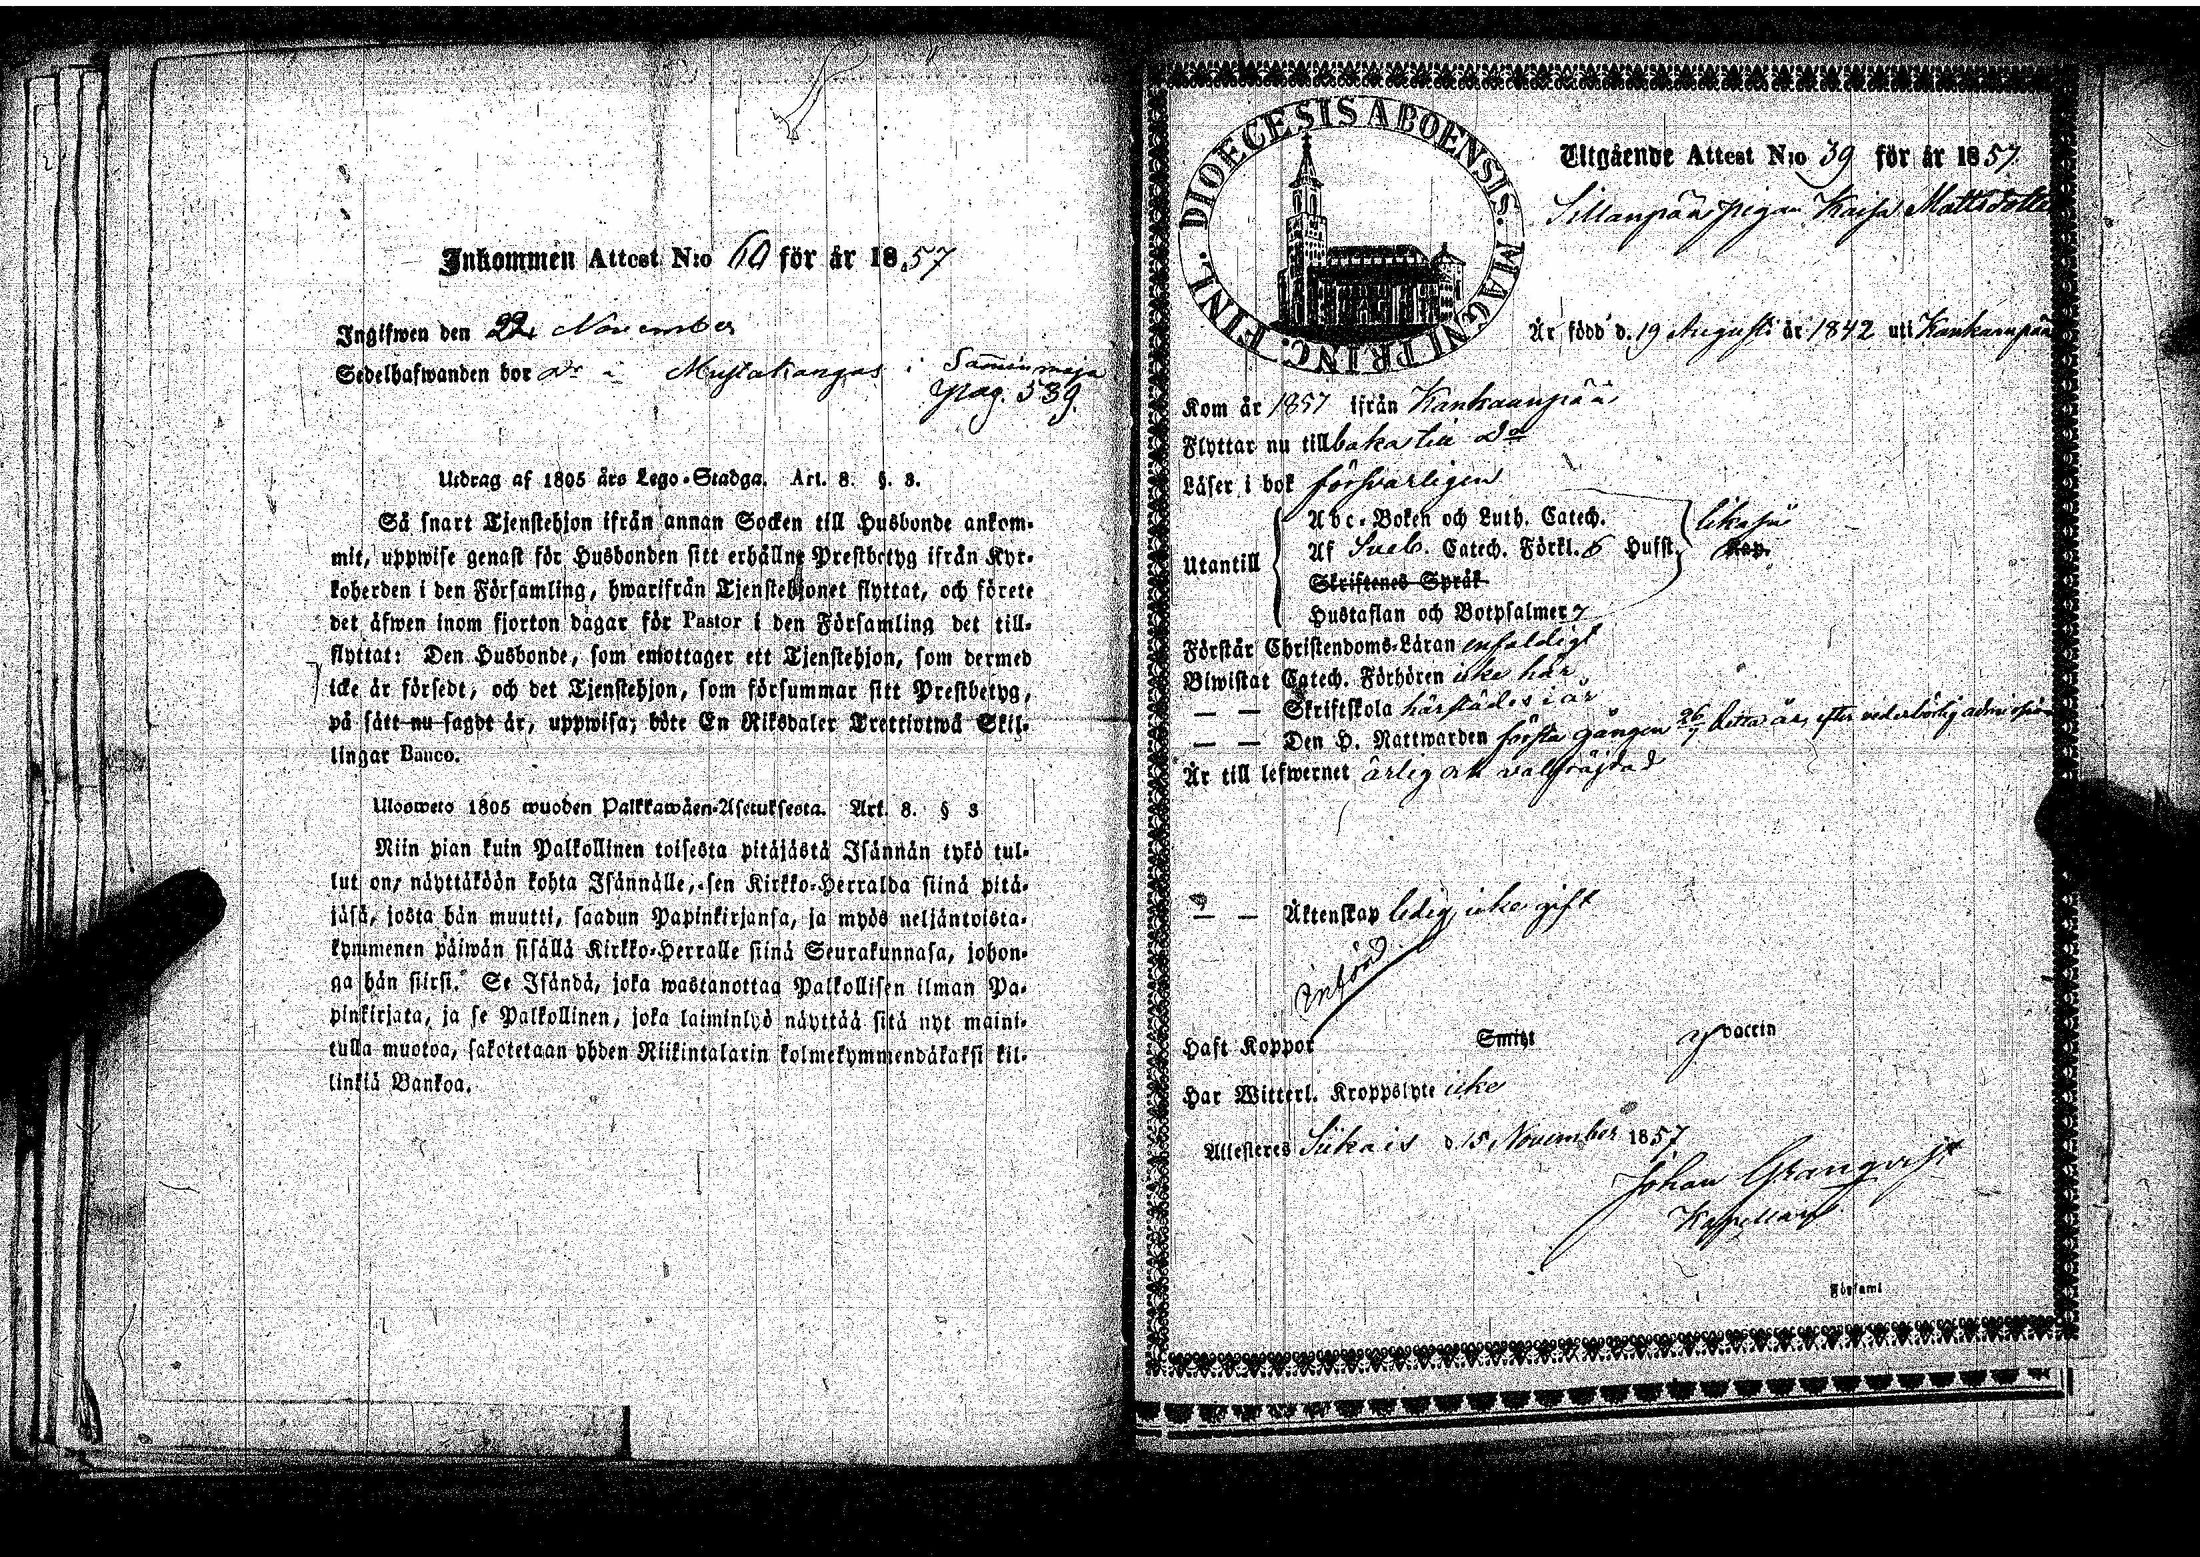 Inkommen Attest N:o 60 för år 1857
Ingifwen den 22 November
Sedelhafwanden bor Mustakangas i Sammimaja
Pag. 539.
Utdrag af 1805 års Lego-Stadga. Art. 8. §. 3.
Så snart Tjenstehjon ifrån annan Socken till Husbonde ankom-
mit, uppwise genast för Husbonden sitt erhållne Prestbetyg ifrån Kyr-
koherden i den Församling, hwarifrån Tjenstehjonet flyttat, och förete
det äfwen inom fjorton dagar för Pastor i den Församling det till-
flyttat: Den Husbonde, som emottager ett Tjenstehjon, som dermed
icke är försedt, och det Tjenstehjon, som försummar sitt Prestbetyg,
på sätt nu sagdt är, uppwisa; böte En Riksdaler Trettiotwå Skil-
lingar Banco.
Ulosweto 1805 wuoden Palkkawäen-Asetuksesta. Art. 8. § 3
Niin pian kuin Palkollinen toisesta pitäjästä Isännän tykö tul-
lut on, näyttäköön kohta Isännälle, sen Kirkko-Herralda siinä pitä-
jäsä, josta hän muutti, saadun Papinkirjansa, ja myös neljäntoista-
kymmenen päiwän sisällä Kirkko-Herralle siinä Seurakunnasa, johon-
ga hän siirsi. Se Isändä, joka wastanottaa Palkollisen ilman Pa-
pinkirjata, ja se Palkollinen, joka laiminlyö näyttää sitä nyt maini-
tulla muotoa, sakotetaan yhden Riikintalarin kolmekymmendäkaksi kil-
linkiä Bankoa.
DIOECESIS ABOENSIS. MAGNI PRINC. FINL.
Utgående Attest N:o 39 för år 1857.
Sillanpää pigan Kaisa Mattsdotter
Är född d. 19 Augusti år 1842 uti Kankaanpää
Kom år 1857 ifrån Kankaanpää
Flyttar nu tillbaka till do
Läser i bok försvarligen
Utantill
Abc-Boken och Luth. Catech.
Af Sveb. Catech. Förkl. 6 Hufst.
Skriftenes Språk
Hustaflan och Botpsalmer 7
likaså
Kap.
Förstår Christendoms-Läran enfaldigt
Biwistat Catech. Förhören icke här
— — Skriftskola härstädes i år
— — Den H. Nattwarden första gången 26/7 detta år, efter vederbörlig admission
Är till lefwernet ärlig och välfräjdad
— — Äktenskap ledig, icke gift
införd
Haft Koppor Smitt vaccin
Har Witterl. Kroppslyte icke
Attesteres Siikais d. 15 November 1857
Johan Granqvist
Kapellan
Församl